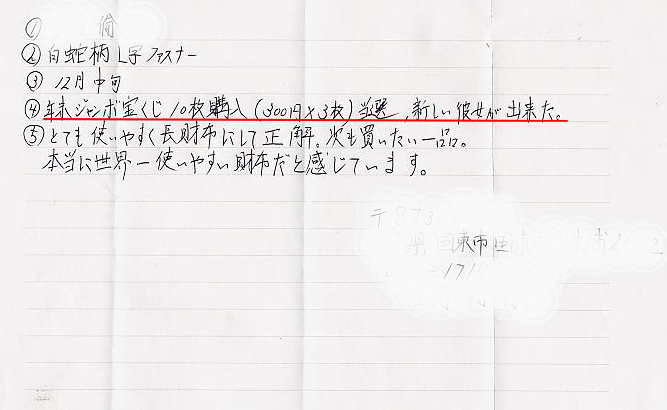 ① 倫
② 白蛇柄 L字ファスナー
③ 12月中旬
④ 年末ジャンボ宝くじ 10枚購入(300円×3枚)当選、新しい彼女が出来た。
⑤ とても使いやすく長財布にして正解。次も買いたい一品。
本当に世界一使いやすい財布だと感じています。
〒873
県 国東市国東
-171